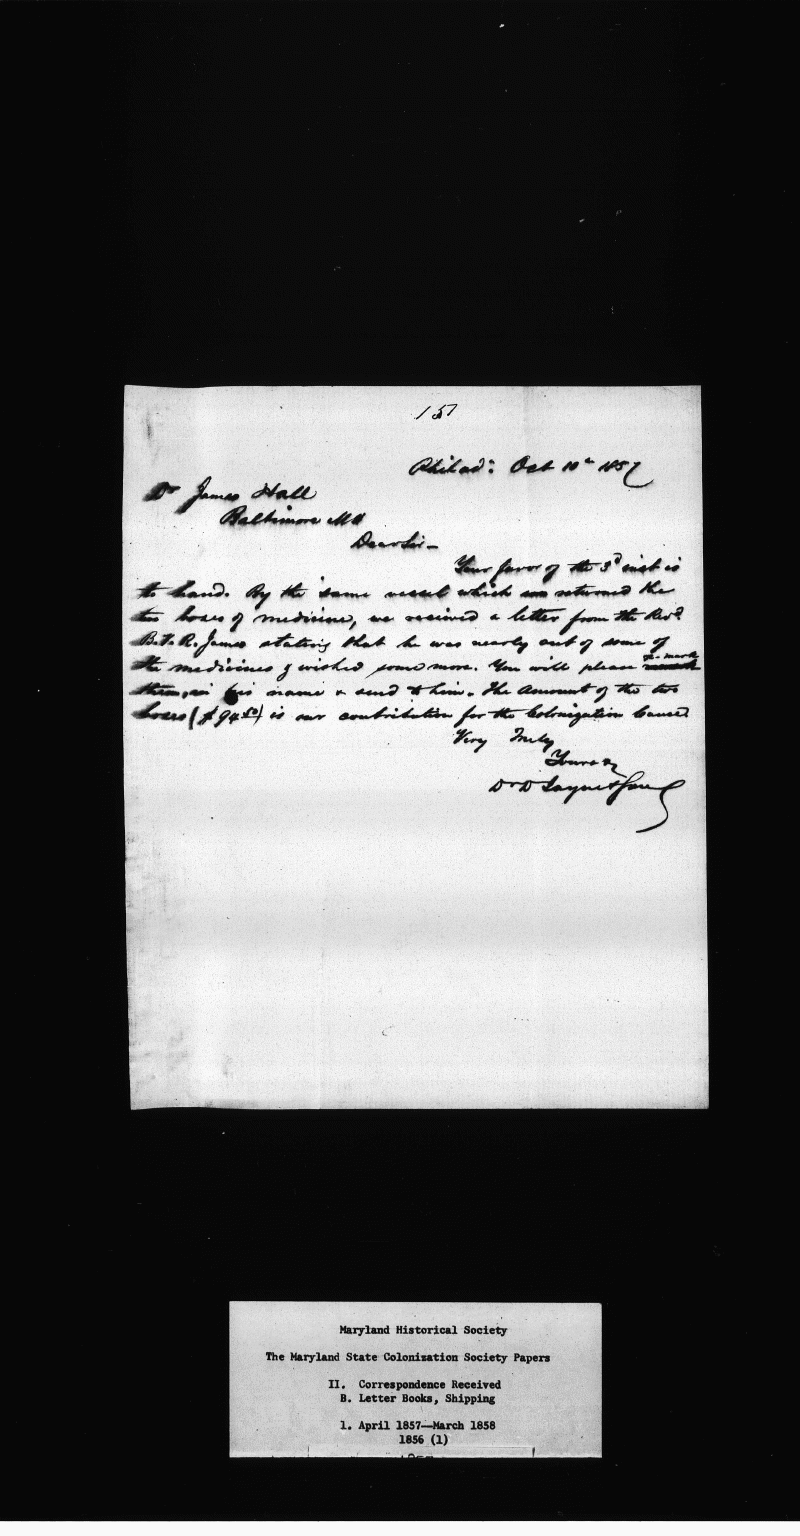 151
Philad: Oct 10th 1857
Dr James Hall
Baltimore Md
Dear Sir—
Your favor of the 3d inst is
to hand. By the same vessel which was returned the
two boxes of medicine, we received a letter from the Revd
B.V.R. James stating that he was nearly out of some of
the medicines & wished some more. You will please re-mark
them, in his name & send to him. The amount of the two
boxes ($94.50) is our contribution for the Colonization Cause
Very Truly
Yours &c
Dr D Jayne & Son
Maryland Historical Society
The Maryland State Colonization Society Papers
II. Correspondence Received
B. Letter Books, Shipping
1. April 1857—March 1858
1856 (1)